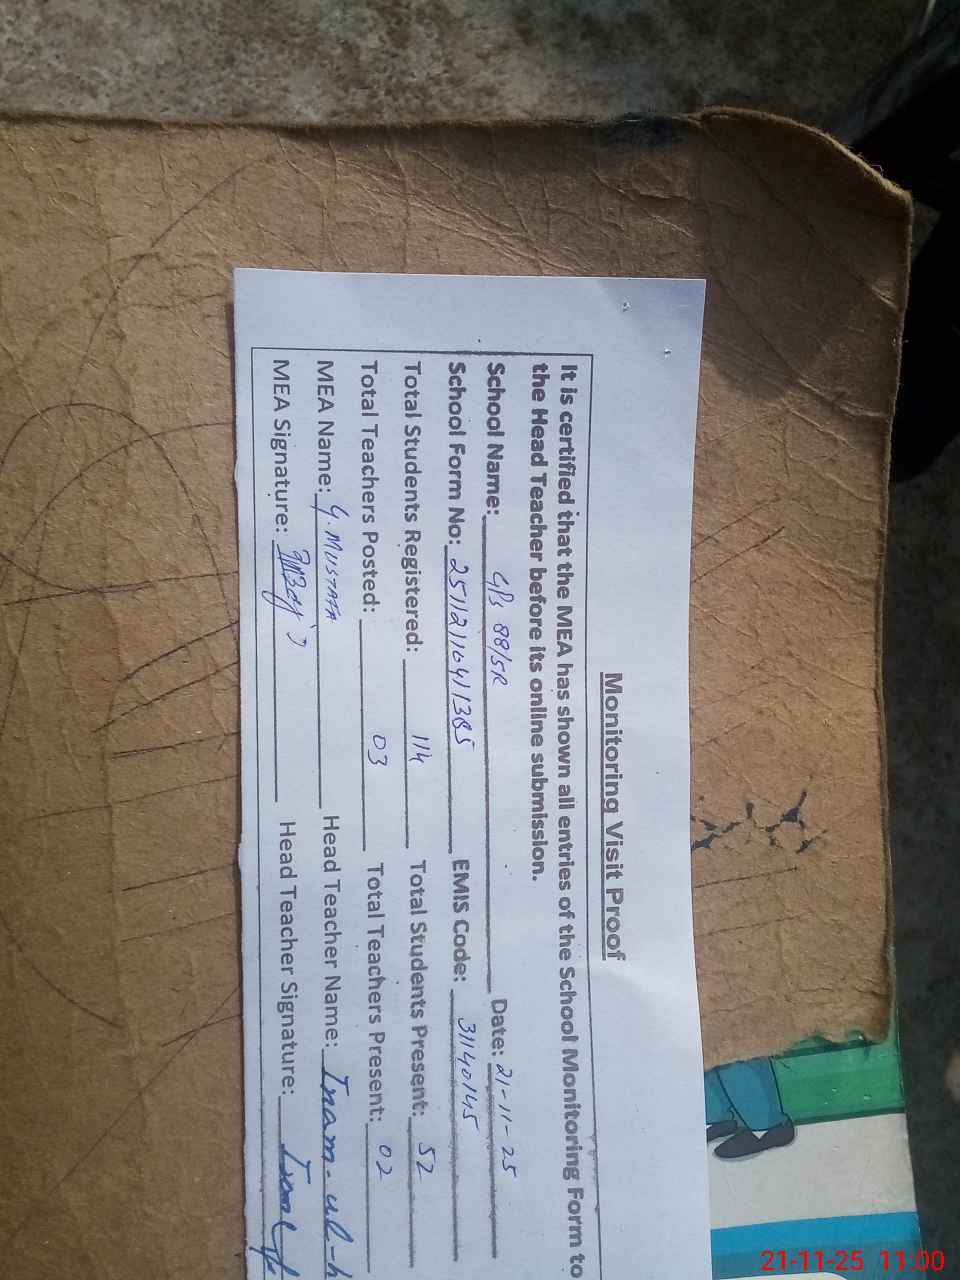 Monitoring Visit Proof
It is certified that the MEA has shown all entries of the School Monitoring Form to
the Head Teacher before its online submission.
School Name: G/Ps 88/5R Date: 21-11-25
School Form No: 25112110411385 EMIS Code: 31140145
Total Students Registered: 114 Total Students Present: 52
Total Teachers Posted: 03 Total Teachers Present: 02
MEA Name: G. MUSTAFA Head Teacher Name: Inam-ul-h
MEA Signature: Head Teacher Signature:
21-11-25 11:00